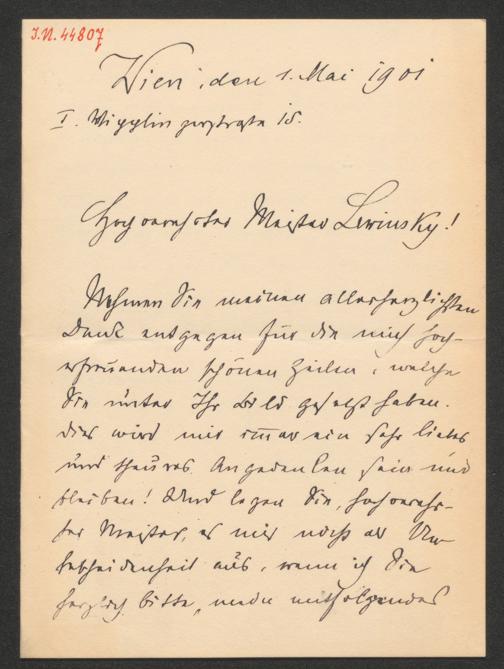 I.N. 44807
Wien, den 1. Mai 1901
I. Wipplingerstraße 15.
Hochverehrter Meister Lewinsky!
Nehmen Sie meinen allerherzlichsten
Dank entgegen für die mich hoch-
erfreuenden schönen Zeilen, welche
Sie unter Ihr Bild gesetzt haben.
Dies wird mir immer ein sehr liebes
und theures Angedenken sein und
bleiben! Und legen Sie, hochverehr-
ter Meister, es mir nicht als Un-
bescheidenheit aus, wenn ich Sie
herzlich bitte, mitfolgendes